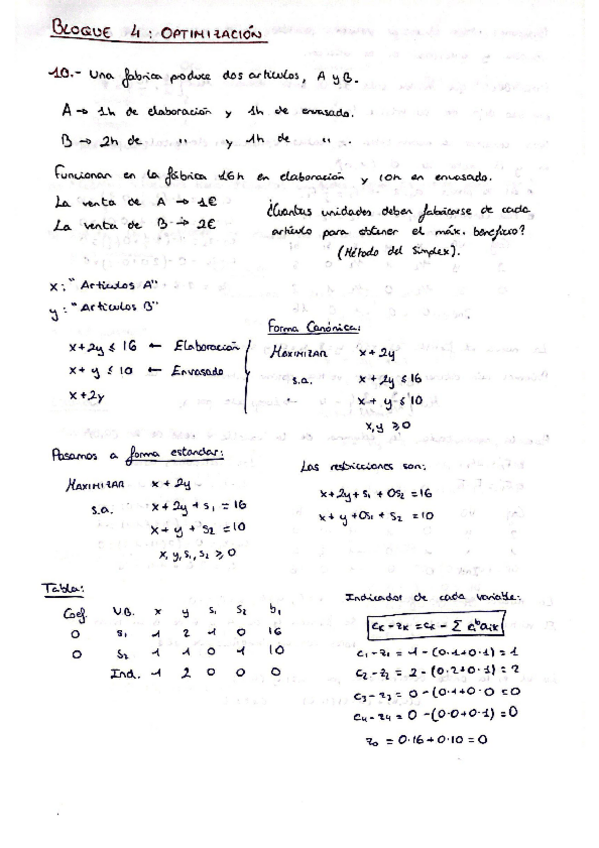 BLOQUE 4: OPTIMIZACIÓN
10.- Una fabrica produce dos artículos, A y B.
A → 1h de elaboración y 1h de envasado.
B → 2h de " y 1h de " .
Funcionan en la fábrica 16h en elaboración y 10h en envasado.
La venta de A → 1€
La venta de B → 2€
¿Cuántas unidades deben fabricarse de cada
artículo para obtener el máx. beneficio?
(Método del Simplex).
x: "Artículos A"
y: "Artículos B"
x+2y ≤ 16 ← Elaboración
x+y ≤ 10 ← Envasado
x+2y
Forma Canónica:
MAXIMIZAR x+2y
s.a. x+2y ≤ 16
x+y ≤ 10
x,y ≥ 0
Pasamos a forma estandar:
MAXIMIZAR x+2y
s.a. x+2y+s₁ = 16
x+y+s₂ = 10
x,y,s₁,s₂ ≥ 0
Las restricciones son:
x+2y+s₁+0s₂ = 16
x+y+0s₁+s₂ = 10
Tabla:
Coef. VB. x y s₁ s₂ b₁
0 s₁ 1 2 1 0 16
0 s₂ 1 1 0 1 10
Ind. 1 2 0 0 0
Indicador de cada variable:
cₖ-zₖ = cₖ - Σ cᵢᵇaᵢₖ
c₁-z₁ = 1-(0·1+0·1) = 1
c₂-z₂ = 2-(0·2+0·1) = 2
c₃-z₃ = 0-(0·1+0·0 = 0
c₄-z₄ = 0-(0·0+0·1) = 0
z₀ = 0·16+0·10 = 0